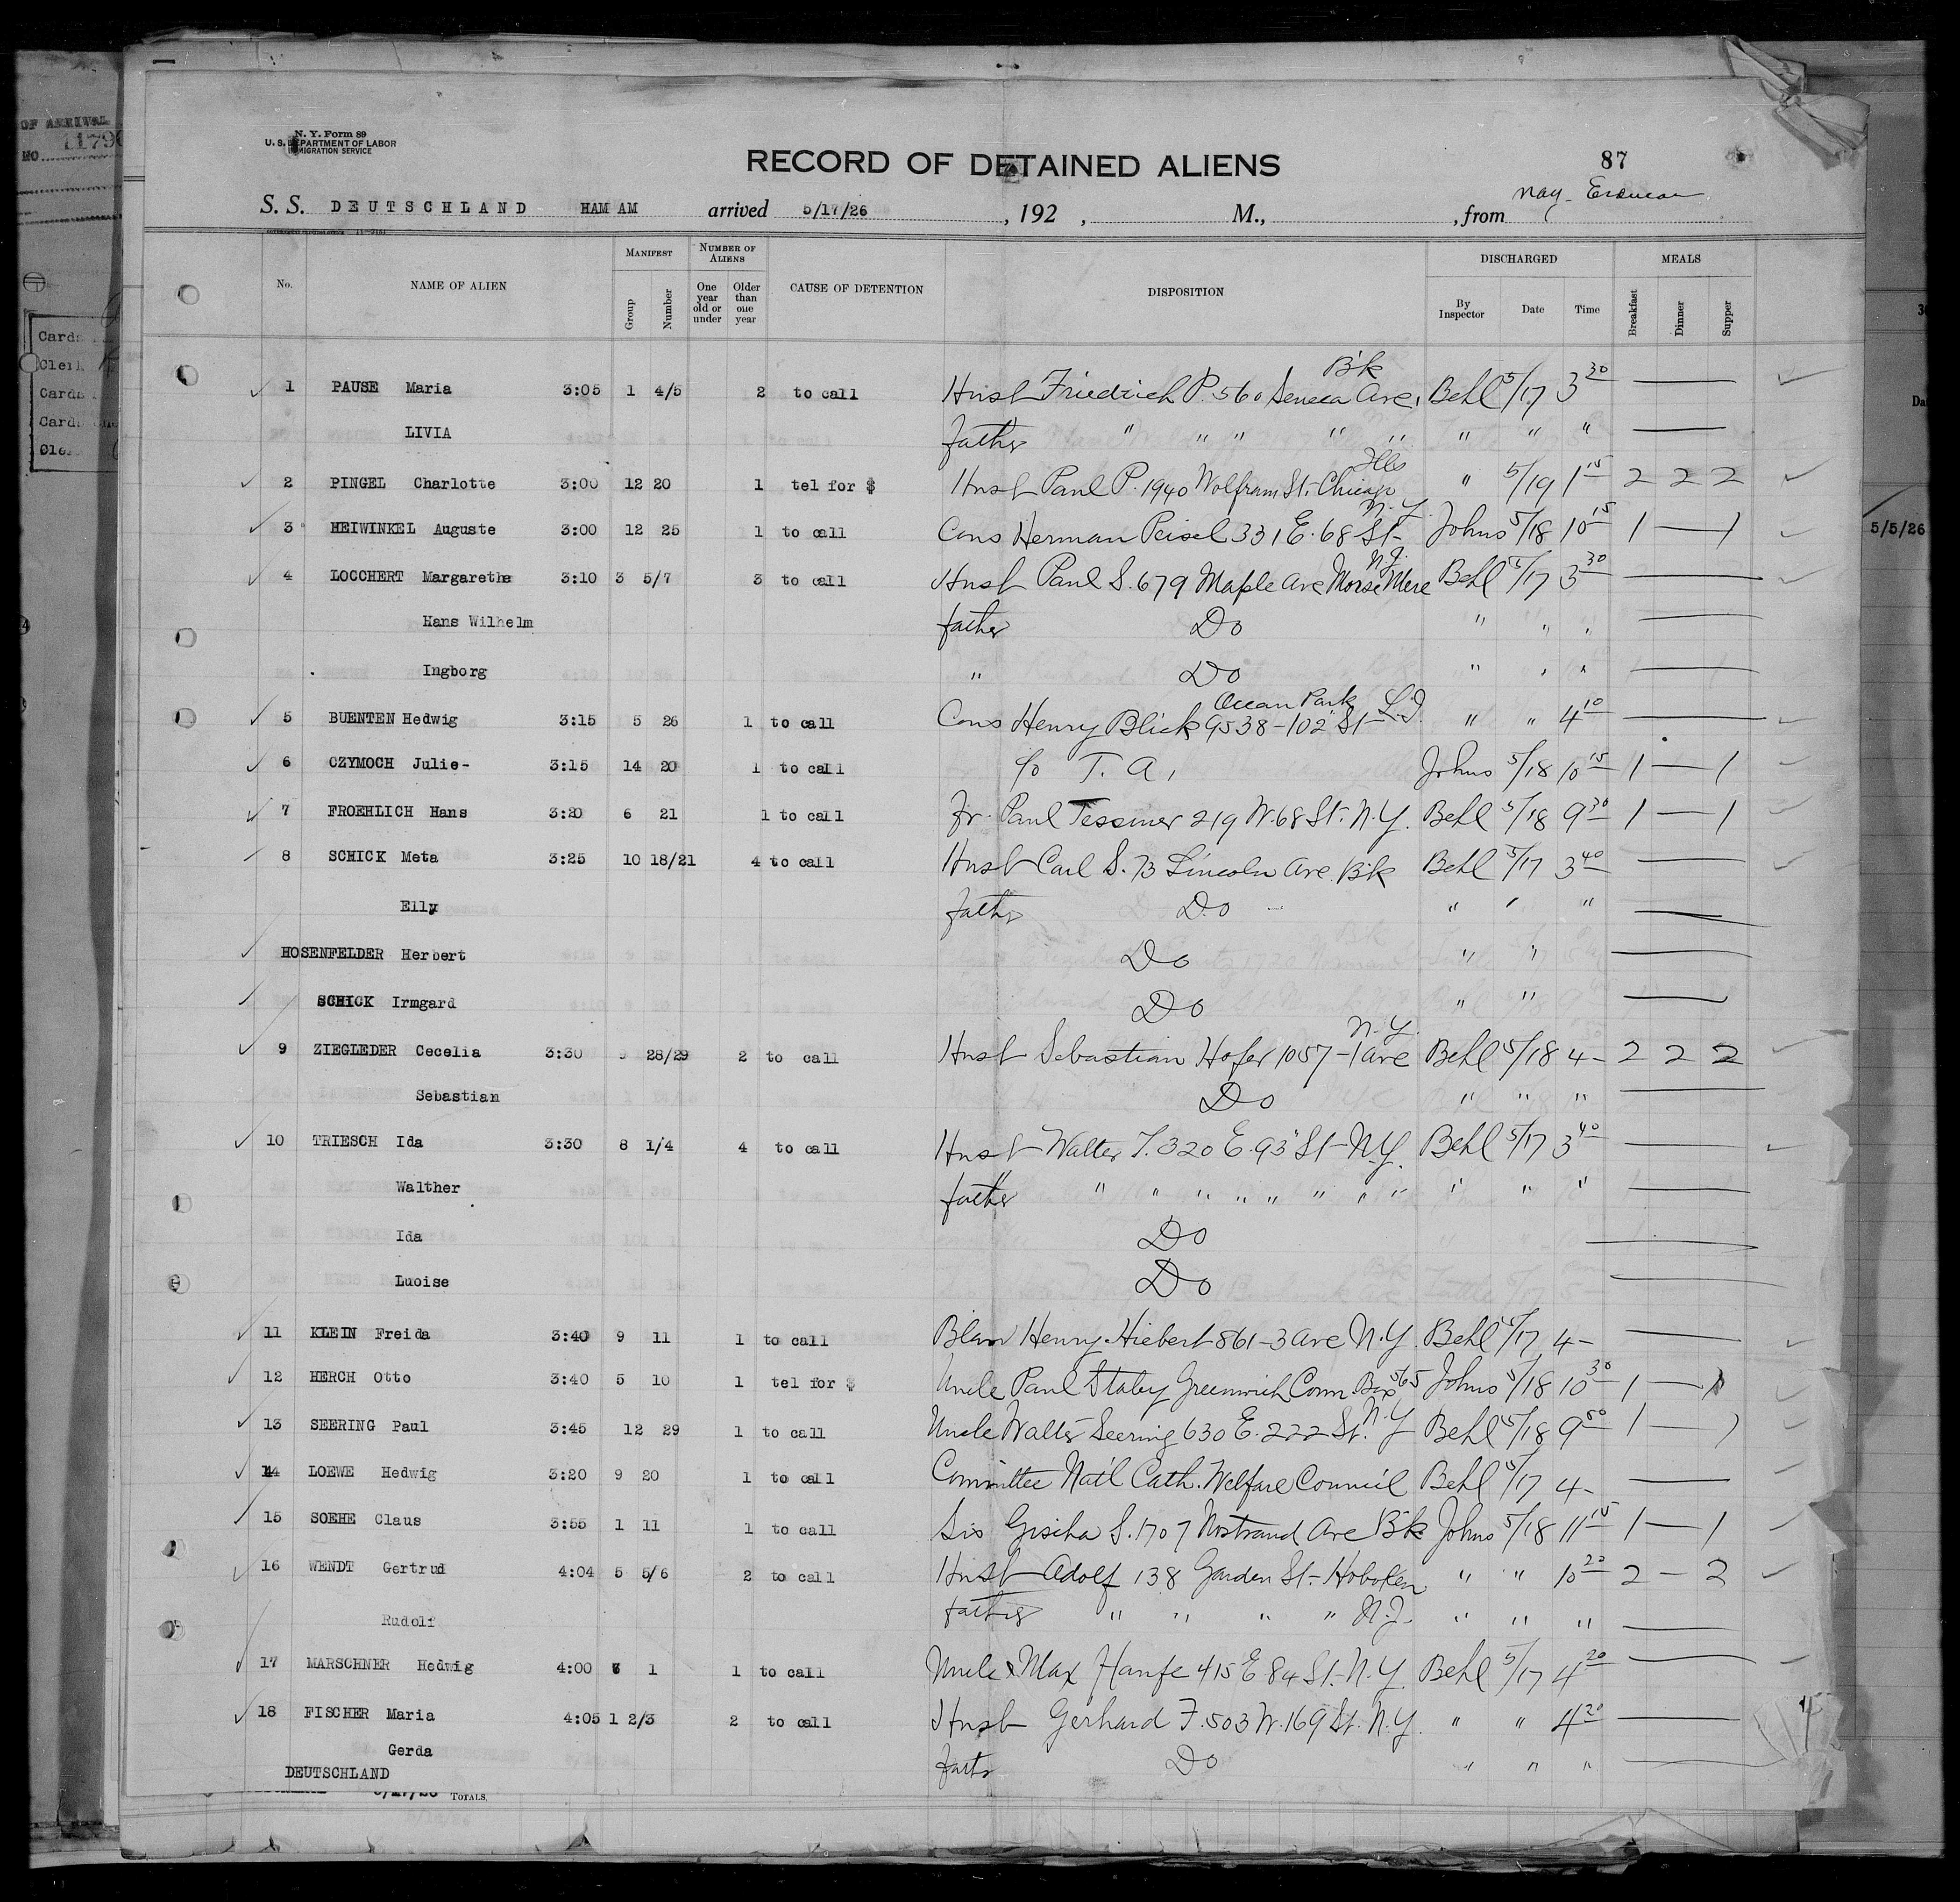 OF ARRIVAL
NO 1179
N. Y. Form 89
U. S. DEPARTMENT OF LABOR
IMMIGRATION SERVICE
RECORD OF DETAINED ALIENS
87
S. S. DEUTSCHLAND HAM AM arrived 5/17/26, 192 , M., , from
No. NAME OF ALIEN MANIFEST Group Number NUMBER OF ALIENS One year old or under Older than one year CAUSE OF DETENTION DISPOSITION DISCHARGED By Inspector Date Time MEALS Breakfast Dinner Supper
1 PAUSE Maria 3:05 1 4/5 2 to call Husb Friedrich P. 560 Seneca Ave, B'k Behl 5/17 3 30
LIVIA father " " " " " " " "
2 PINGEL Charlotte 3:00 12 20 1 tel for $ Husb Paul P. 1940 Wolfram St. Chicago Ills " 5/19 1 15 2 2 2
3 HEIWINKEL Auguste 3:00 12 25 1 to call Cous Herman Peisel 331 E. 68 St N.Y. Johns 5/18 10 15 1 — 1
4 LOCCHERT Margarethe 3:10 3 5/7 3 to call Husb Paul S. 679 Maple Ave Morse Mere N.J. Behl 5/17 3 30
Hans Wilhelm father Do " " "
Ingborg " Do " " "
5 BUENTEN Hedwig 3:15 5 26 1 to call Cous Henry Blick 9538-102 St Ocean Park L.I. " " 4 10
6 CZYMOCH Julie- 3:15 14 20 1 to call c/o T. A. Johns 5/18 10 15 1 — 1
7 FROEHLICH Hans 3:20 6 21 1 to call Fr. Paul Tessmer 219 W. 68 St. N.Y. Behl 5/18 9 30 1 — 1
8 SCHICK Meta 3:25 10 18/21 4 to call Husb Carl S. 73 Lincoln Ave. B'k Behl 5/17 3 40
Elly father Do " " "
HOSENFELDER Herbert Do " "
SCHICK Irmgard Do " "
9 ZIEGLEDER Cecelia 3:30 28/29 2 to call Husb Sebastian Hofer 1057-1 Ave N.Y. Behl 5/18 4- 2 2 2
Sebastian Do " " "
10 TRIESCH Ida 3:30 8 1/4 4 to call Husb Walter T. 320 E. 93 St N.Y. Behl 5/17 3 40
Walther father " " " " " " " " " " "
Ida Do
Luoise Do
11 KLEIN Freida 3:40 9 11 1 to call Henry Hiebert 861-3 Ave N.Y. Behl 5/17 4-
12 HERCH Otto 3:40 5 10 1 tel for $ Uncle Paul Staby Greenwich Conn. Box 565 Johns 5/18 10 30 1 — 1
13 SEERING Paul 3:45 12 29 1 to call Uncle Walter Seering 630 E. 222 St. N.Y Behl 5/18 9 50 1 — 1
14 LOEWE Hedwig 3:20 9 20 1 to call Committee Nat'l Cath. Welfare Council Behl 5/17 4-
15 SOEHE Claus 3:55 1 11 1 to call Sis S. 1707 Nostrand Ave B'k Johns 5/18 11 15 1 — 1
16 WENDT Gertrud 4:04 5 5/6 2 to call Husb Adolf 138 Garden St. Hoboken " " 10 20 2 - 2
Rudolf father " " " " N.J. " " "
17 MARSCHNER Hedwig 4:00 1 1 to call Uncle Max Hanfe 415 E 84 St. N.Y. Behl 5/17 4 20
18 FISCHER Maria 4:05 1 2/3 2 to call Husb Gerhard F. 503 W. 169 St. N.Y. " " 4 20
Gerda Do " " "
DEUTSCHLAND
TOTALS.
5/5/26